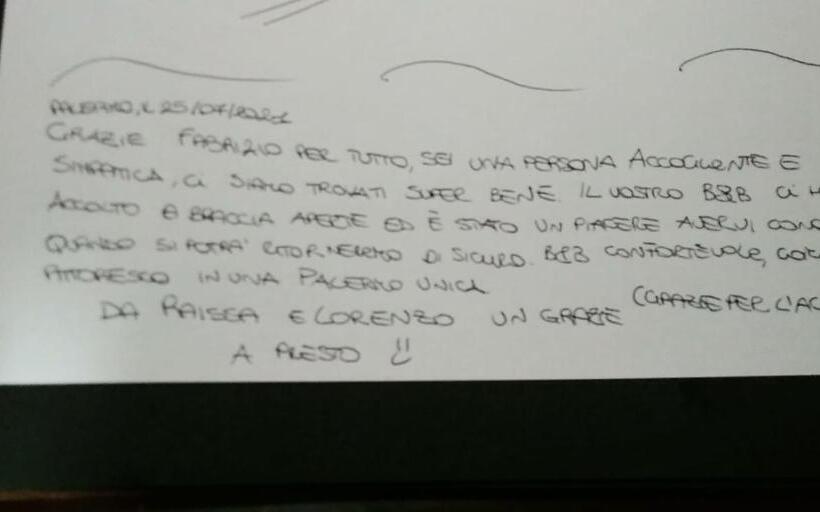 PALERMO, IL 25/07/2021
GRAZIE FABRIZIO PER TUTTO, SEI UNA PERSONA ACCOGLIENTE E
SIMPATICA, CI SIAMO TROVATI SUPER BENE. IL VOSTRO B&B CI
ACCOLTO A BRACCIA APERTE ED È STATO UN PIACERE AVERVI
QUANDO SI POTRA' RITORNEREMO DI SICURO. B&B CONFORTEVOLE,
PITTORESCO IN UNA PALERMO UNICA
DA RAISSA E LORENZO UN GRAZIE (GRAZIE PER L'AC
A PRESTO